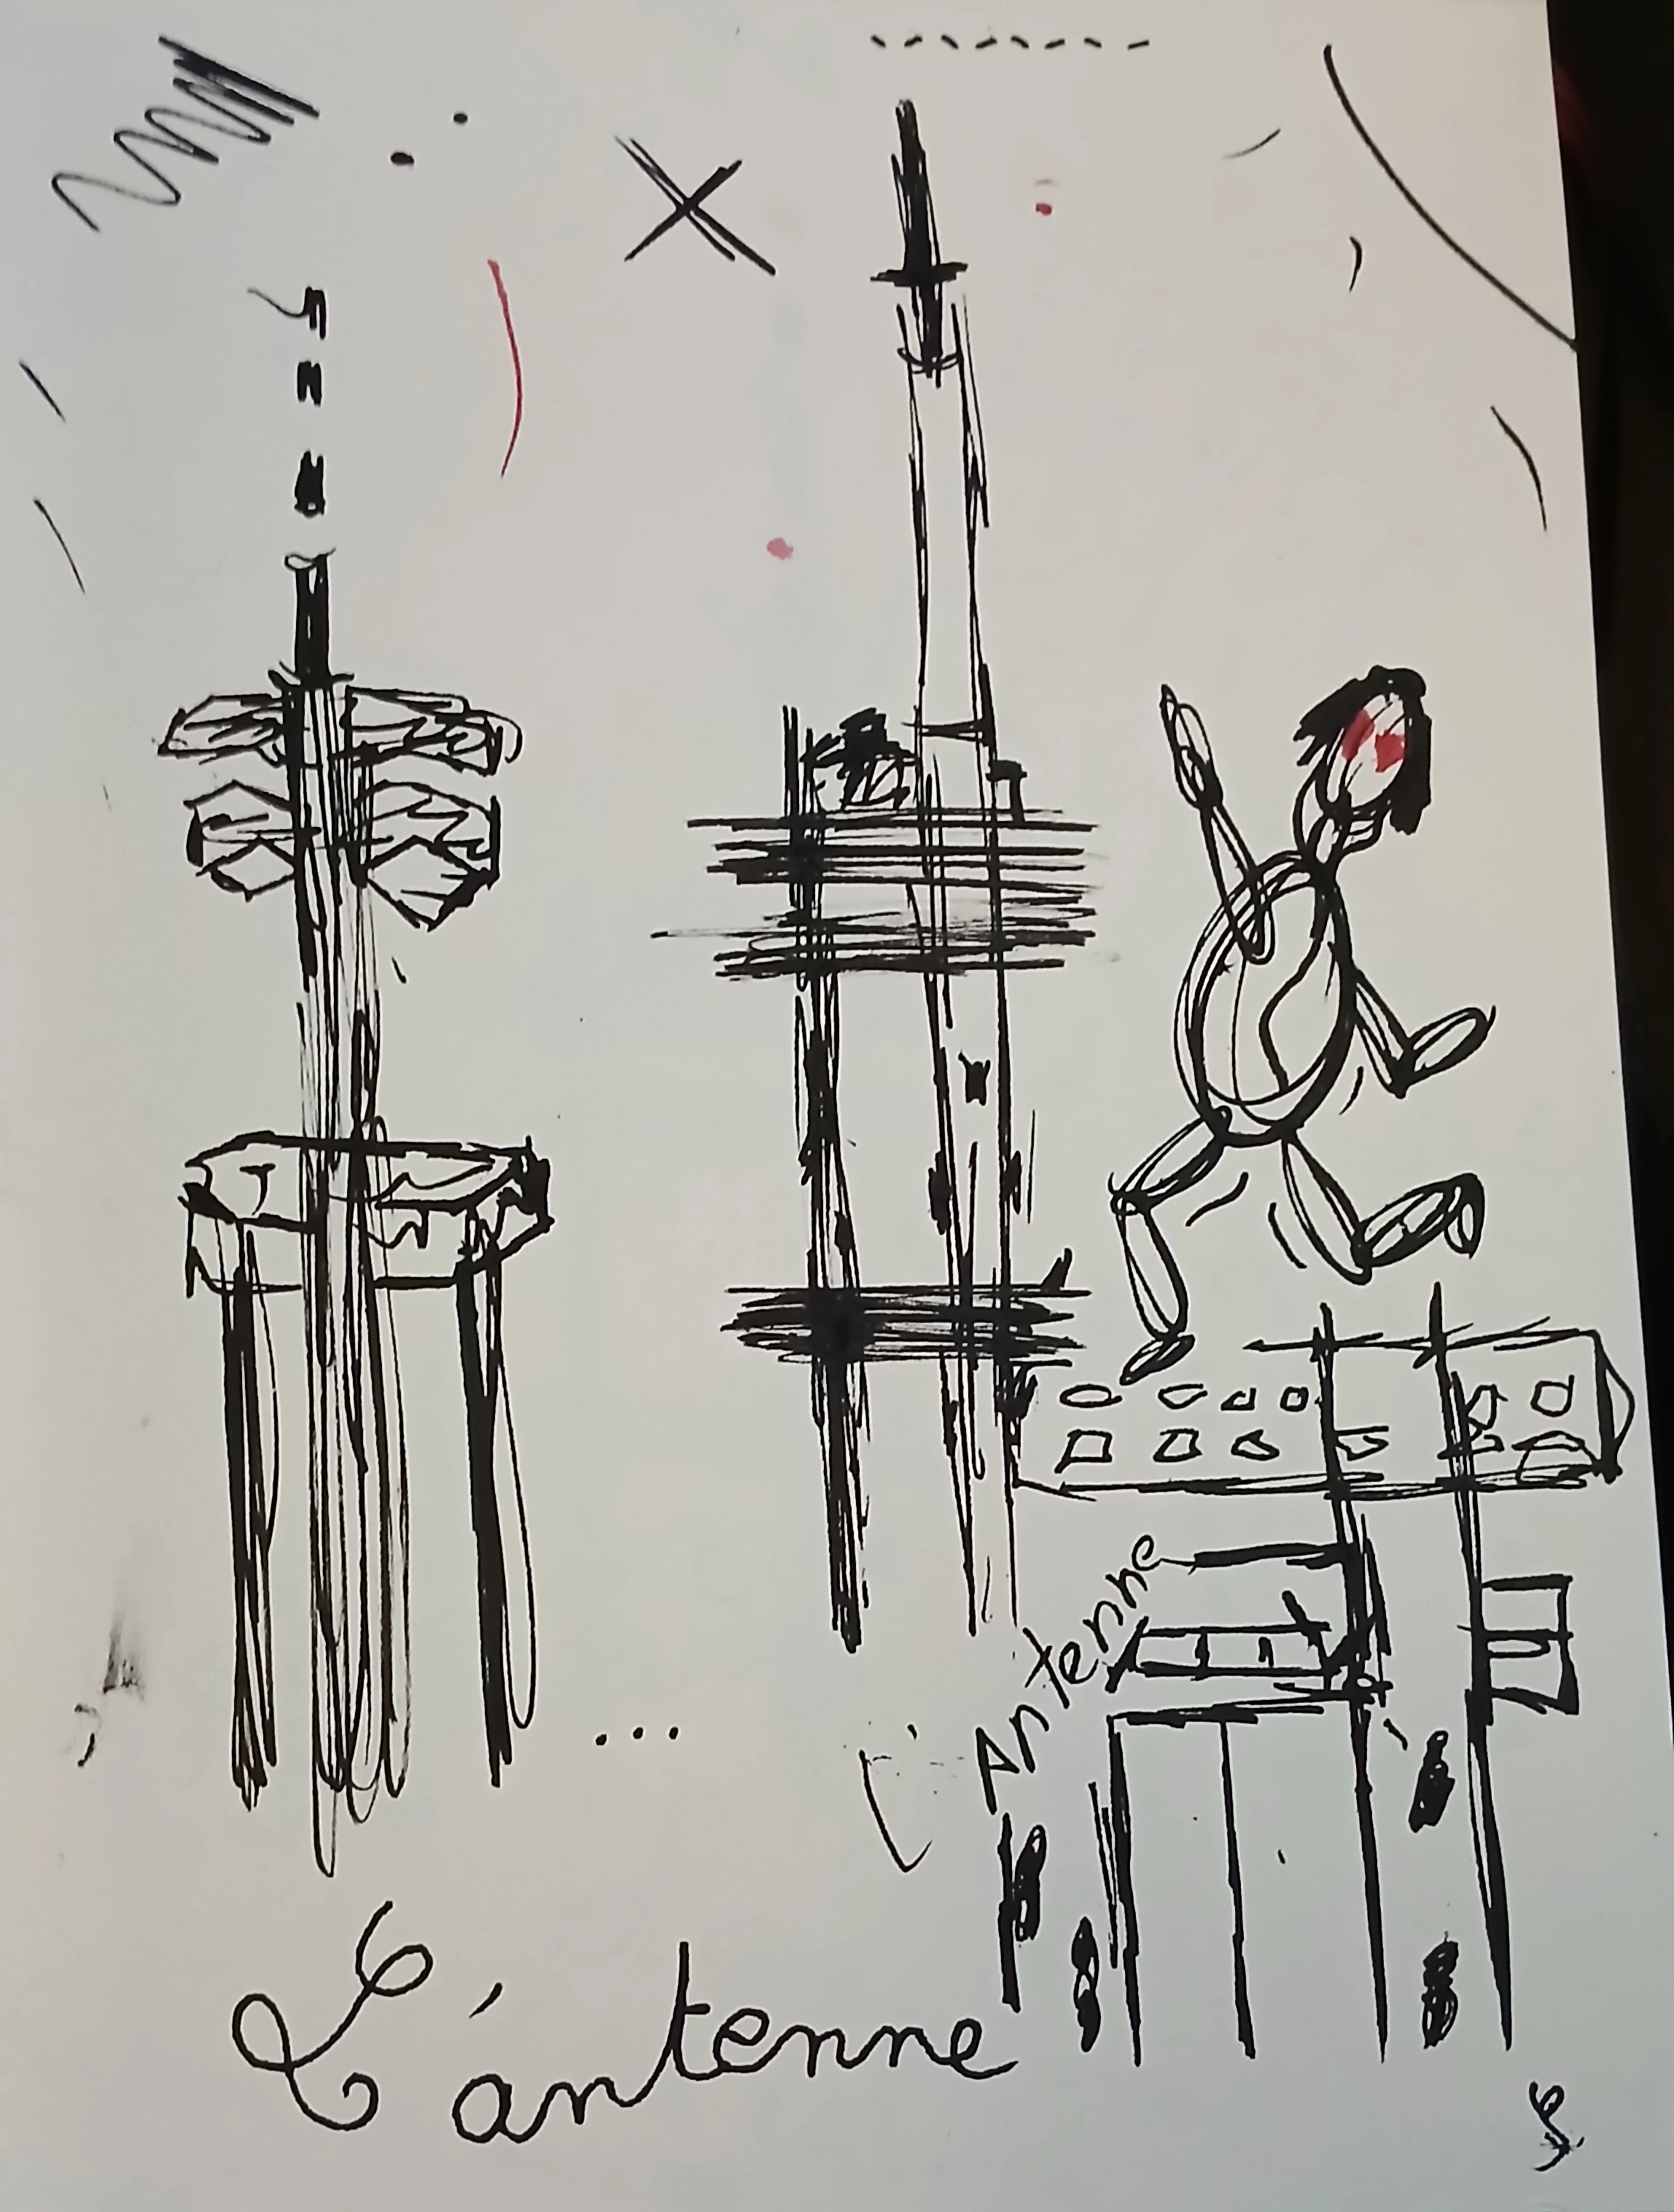 L'Antenne
L'antenne